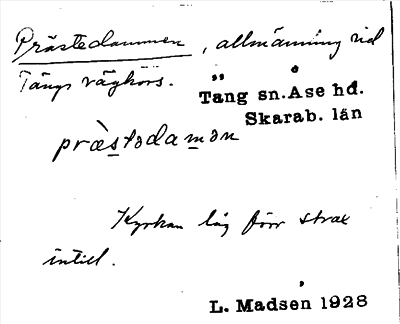 Prästedammen, allmänning vid
Tängs vägkors.
Täng sn. Åse hd.
Skarab. län
præ̀stədamən
Kyrkan låg förr strax
intill.
L. Madsén 1928